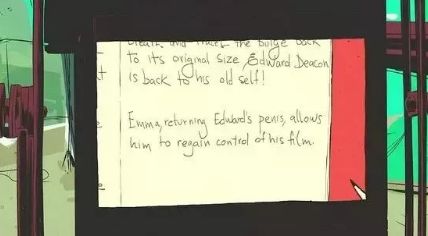 and the bulge back
to its original size Edward Deacon
is back to his old self!
Emma, returning Edward's penis, allows
him to regain control of his film.